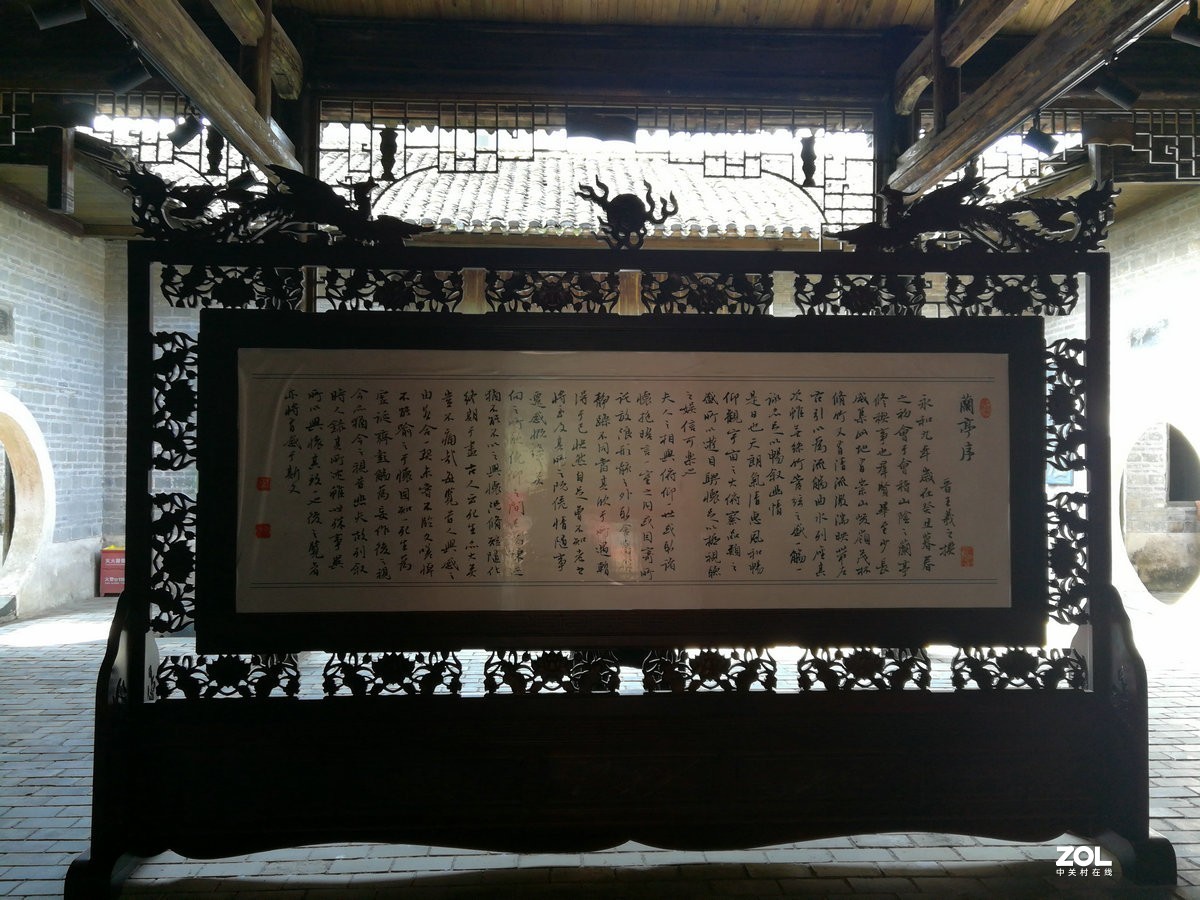 蘭亭序
晋王羲之撰
永和九年歲在癸丑暮春
之初會于會稽山陰之蘭亭
修禊事也羣賢畢至少長
咸集此地有崇山峻領茂林
修竹又有清流激湍映帶左
右引以為流觴曲水列坐其
次雖無絲竹管弦之盛一觴一
詠亦足以暢敘幽情
是日也天朗氣清惠風和暢
仰觀宇宙之大俯察品類之
盛所以遊目騁懷足以極視聽
之娛信可樂也
夫人之相與俯仰一世或取諸
懷抱晤言一室之內或因寄所
託放浪形骸之外雖趣舍
靜躁不同當其欣于所遇暫
得于己快然自足曾不知老之
將至及其所之既倦情隨事
遷感慨係之矣
向之所欣俛仰之間
猶不能不以之興懷況脩短隨化
終期于盡古人云死生亦大矣
豈不痛哉每覽昔人興感之
由若合一契未嘗不臨文嗟悼
不能喻之于懷固知一死生為
虛誕齊彭殤為妄作後之視
今亦猶今之視昔悲夫故列敘
時人錄其所述雖世殊事異
所以興懷其致一也後之覽者
亦將有感于斯文
灭火器箱
ZOL
中关村在线